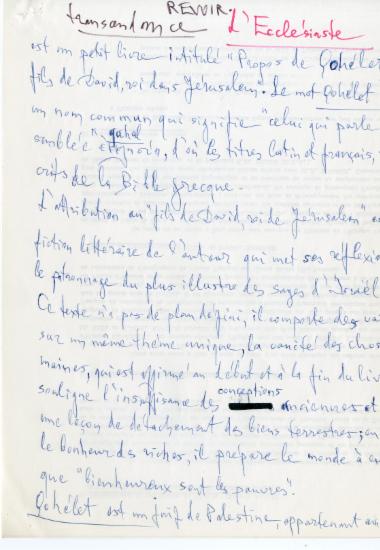 REVOIR
transcendance L'Ecclésiaste
est un petit livre intitulé "Propos de Qohélet
fils de David, roi dans Jérusalem". Le mot Qohélet
un nom commun qui signifie "celui qui parle
semblée" qahal d'où les titres latin et français,
crits de la Bible grecque.
L'attribution au "fils de David, roi de Jérusalem" es
fiction littéraire de l'auteur qui met ses réflexio
le patronage du plus illustre des sages d'Israël
Ce texte n'a pas de plan défini, il comporte des va
sur un même thème unique, la vanité des chos
maines, qui est affirmé au début et à la fin du liv
souligne l'insuffisance des conceptions anciennes et
une leçon de détachement des biens terrestres; en
le bonheur des riches, il prépare le monde à en
que "bienheureux sont les pauvres".
Qohélet est un juif de Palestine, appartenant au